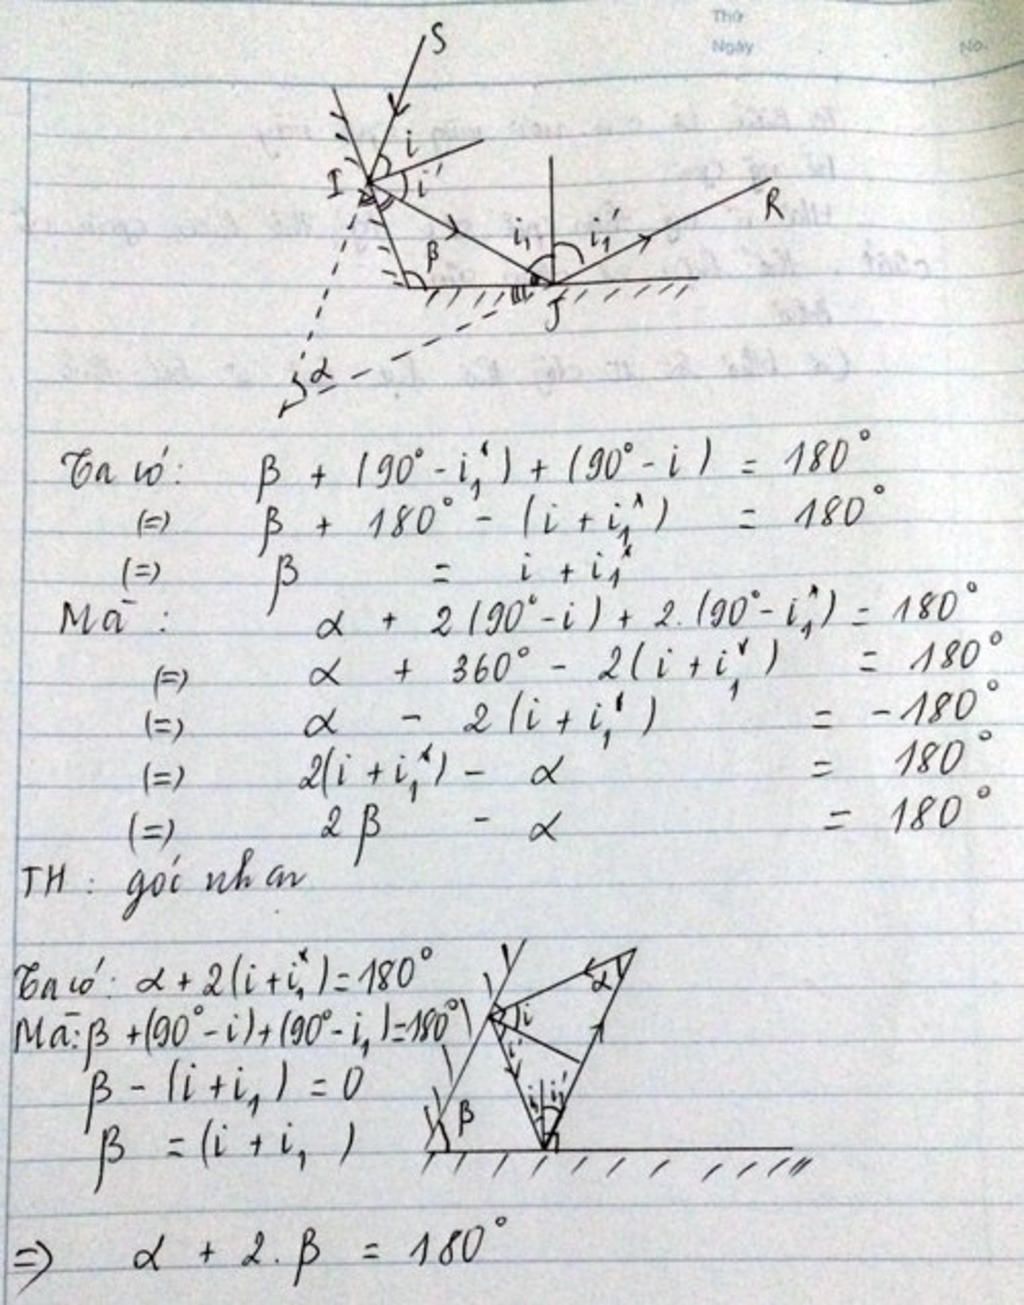 Thứ
Ngày
No.
S
i
I
i'
R
i₁ i₁'
β
J
α
Ta có: β + (90° - i₁') + (90° - i) = 180°
(=) β + 180° - (i + i₁') = 180°
(=) β = i + i₁'
Mà: α + 2(90° - i) + 2.(90° - i₁') = 180°
(=) α + 360° - 2(i + i₁') = 180°
(=) α - 2(i + i₁') = -180°
(=) 2(i + i₁') - α = 180°
(=) 2β - α = 180°
TH: góc nhọn
Ta có: α + 2(i + i₁') = 180°
α
Mà: β + (90° - i) + (90° - i₁) = 180°
i
i'
β - (i + i₁) = 0
i₁ i₁'
β
β = (i + i₁)
=> α + 2.β = 180°